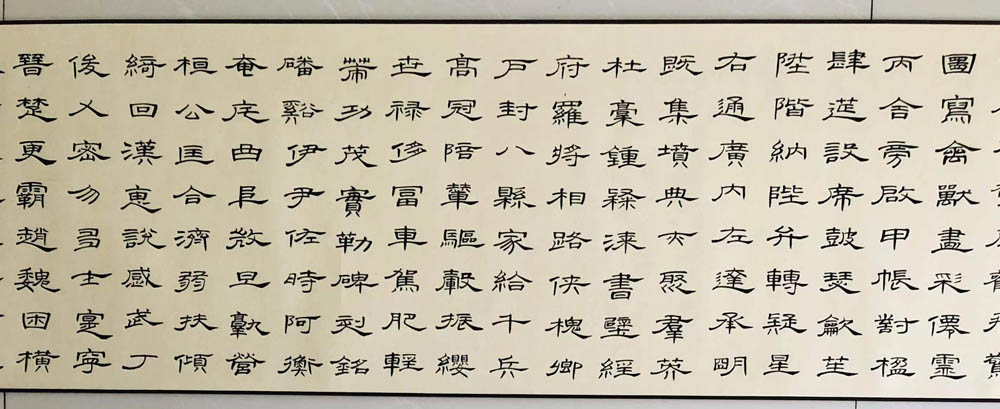 圖寫禽獸畫彩僊靈
丙舍旁啟甲帳對楹
肆筵設席鼓瑟龡笙
陞階納陛弁轉疑星
右通廣內左達承明
既集墳典亦聚羣英
杜稾鍾隸漆書壁經
府羅將相路俠槐卿
戶封八縣家給千兵
髙冠陪輦驅轂振纓
世祿侈富車駕肥輕
策功茂實勒碑刻銘
磻谿伊尹佐時阿衡
奄宅曲阜微旦孰營
桓公匡合濟弱扶傾
綺回漢惠說感武丁
俊乂密勿多士寔寧
晉楚更霸趙魏困橫